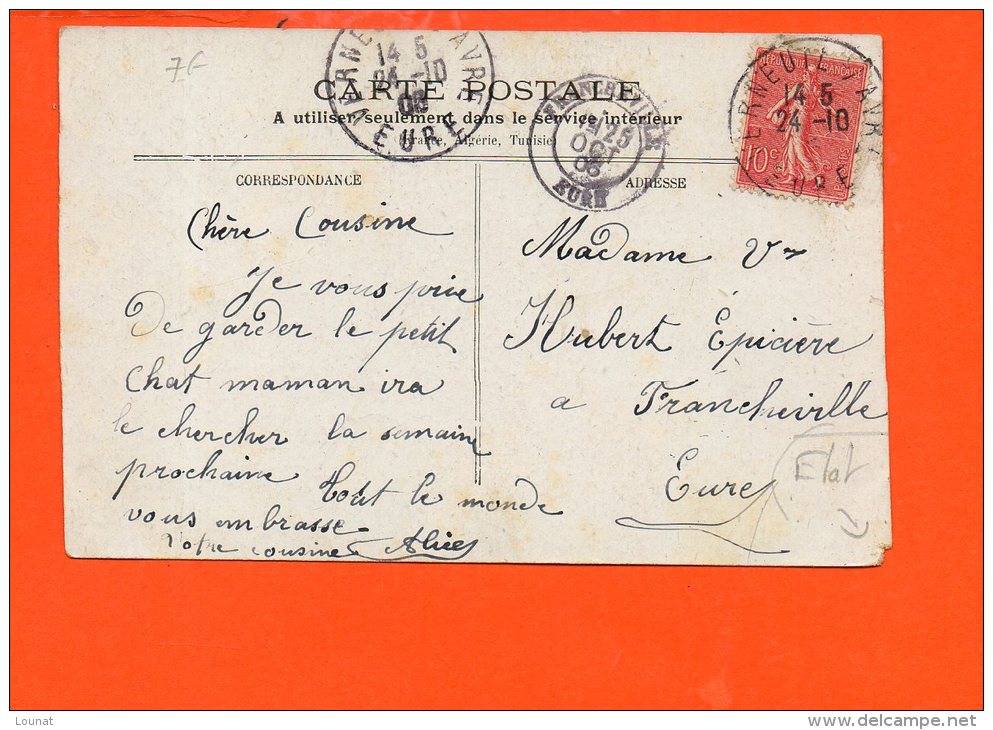 7€
CARTE POSTALE
A utiliser seulement dans le service intérieur
(France, Algérie, Tunisie)
14 5
24 -10
EURE
25
OCT
06
EURE
RÉPUBLIQUE FRANÇAISE
10c
14 5
24 -10
CORRESPONDANCE
ADRESSE
Chère Cousine
Je vous prie
De garder le petit
chat maman ira
le chercher la semaine
prochaine tout le monde
vous embrasse
Votre cousine Alice
Madame Vve
Hubert Épicière
a Francheville
Eure
Etat
Lounat
www.delcampe.net